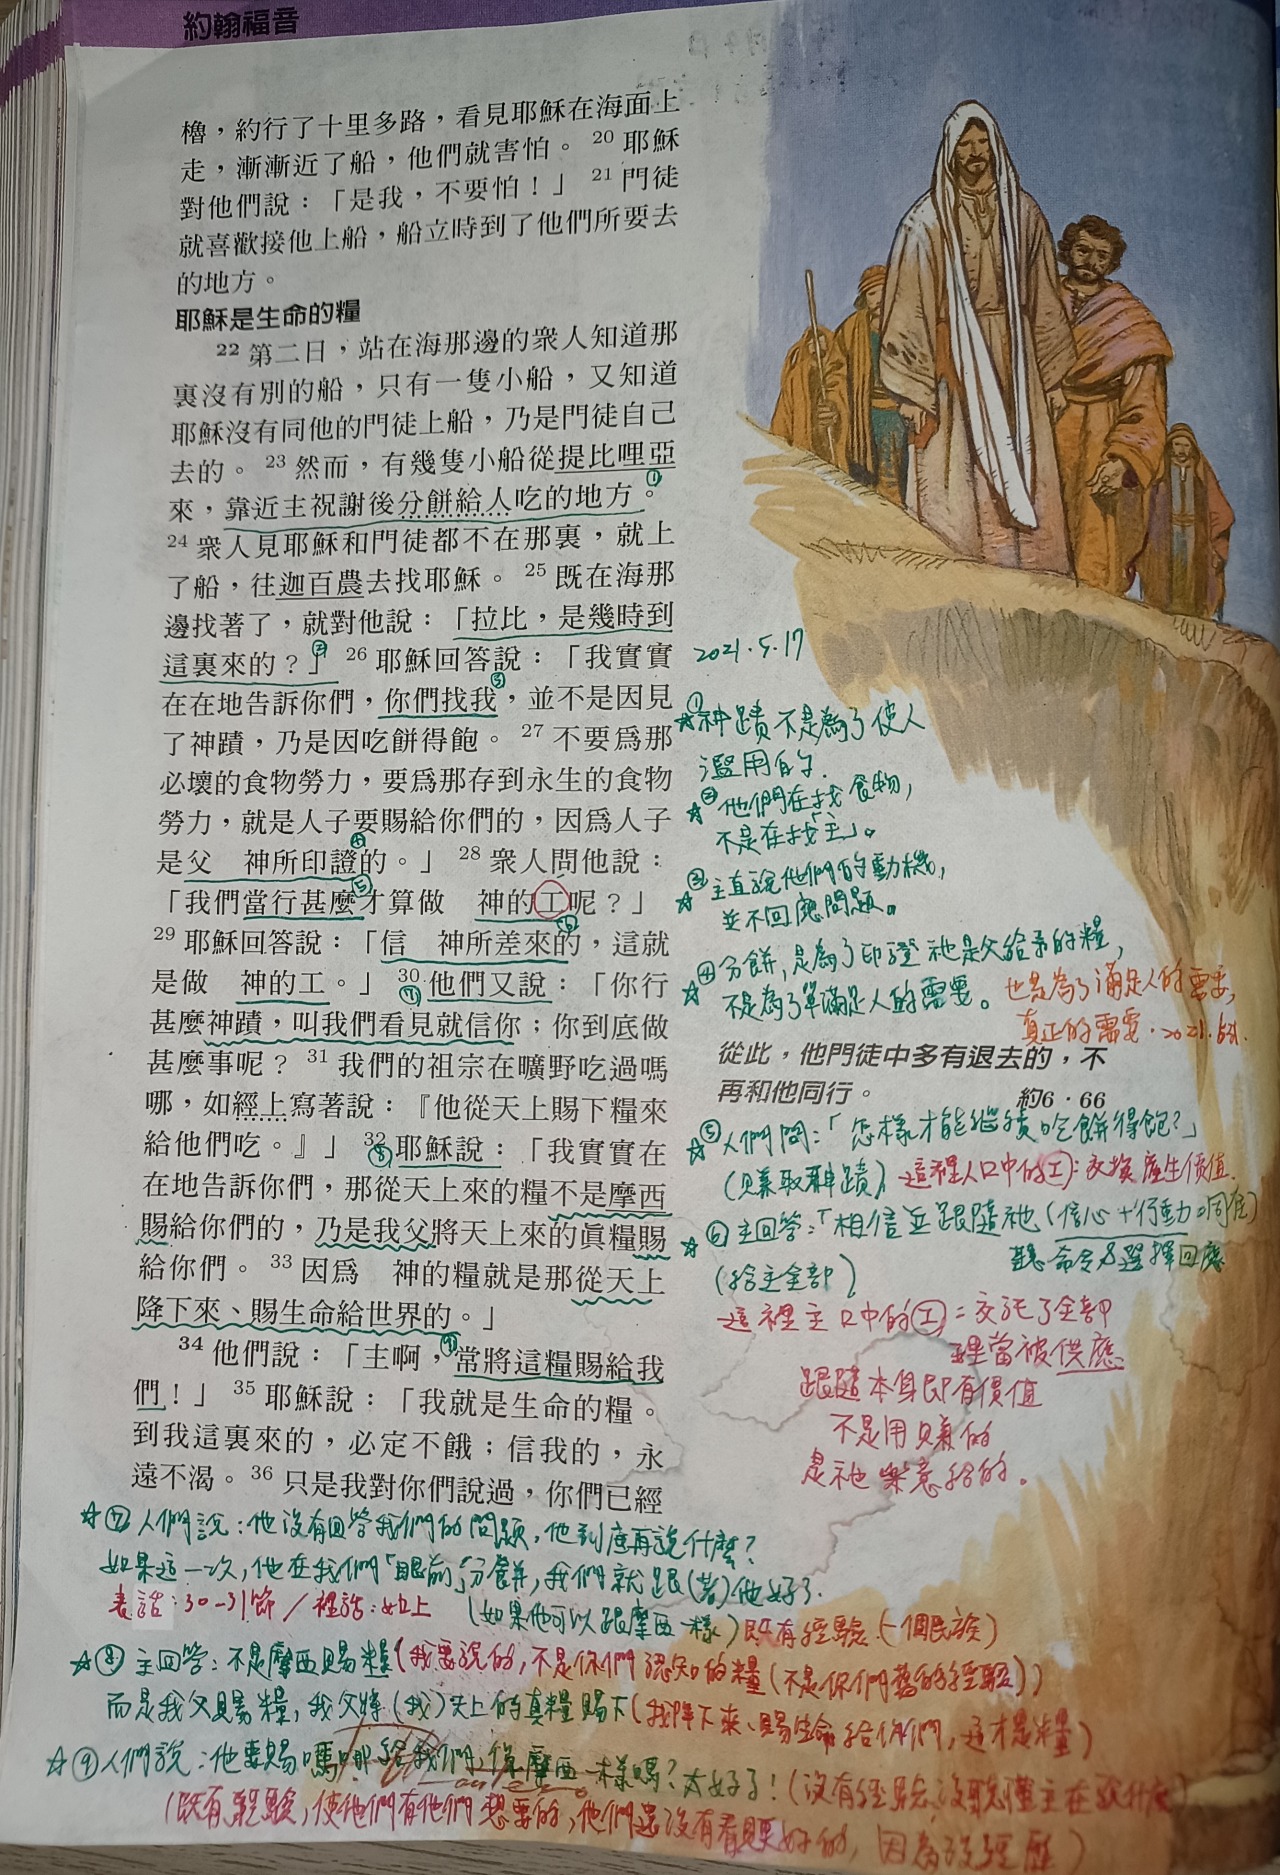 約翰福音
櫓，約行了十里多路，看見耶穌在海面上
走，漸漸近了船，他們就害怕。 20 耶穌
對他們說：「是我，不要怕！」 21 門徒
就喜歡接他上船，船立時到了他們所要去
的地方。
耶穌是生命的糧
22 第二日，站在海那邊的衆人知道那
裏沒有別的船，只有一隻小船，又知道
耶穌沒有同他的門徒上船，乃是門徒自己
去的。 23 然而，有幾隻小船從提比哩亞
來，靠近主祝謝後分餅給人吃的地方。①
24 衆人見耶穌和門徒都不在那裏，就上
了船，往迦百農去找耶穌。 25 既在海那
邊找著了，就對他說：「拉比，是幾時到
這裏來的？」② 26 耶穌回答說：「我實實
在在地告訴你們，你們找我③，並不是因見
了神蹟，乃是因吃餅得飽。 27 不要爲那
必壞的食物勞力，要爲那存到永生的食物
勞力，就是人子要賜給你們的，因爲人子
是父　神所印證④的。」 28 衆人問他說：
「我們當行甚麼⑤才算做　神的工呢？」
29 耶穌回答說：「信　神所差來的⑥，這就
是做　神的工。」 30 ⑦他們又說：「你行
甚麼神蹟，叫我們看見就信你；你到底做
甚麼事呢？ 31 我們的祖宗在曠野吃過嗎
哪，如經上寫著說：『他從天上賜下糧來
給他們吃。』」 32 ⑧耶穌說：「我實實在
在地告訴你們，那從天上來的糧不是摩西
賜給你們的，乃是我父將天上來的眞糧賜
給你們。 33 因爲　神的糧就是那從天上
降下來、賜生命給世界的。」
34 他們說：「主啊，⑨常將這糧賜給我
們！」 35 耶穌說：「我就是生命的糧。
到我這裏來的，必定不餓；信我的，永
遠不渴。 36 只是我對你們說過，你們已經
2021.5.17
☆①神蹟不是為了使人
濫用的.
☆②他們在找食物，
不是在找「主」。
☆③主直說他們的動機，
並不回應問題。
☆④分餅，是為了印證祂是父給予的糧，
不是為了單滿足人的需要。
也是為了滿足人的需要，
真正的需要．2021.
從此，他門徒中多有退去的，不
再和他同行。　約6．66
☆⑤人們問：「怎樣才能繼續吃餅得飽？」
(賺取神蹟) 這裡人口中的(工)：交換產生價值.
☆⑥主回答：「相信並跟隨祂（信心＋行動＝同在）
聽命令&選擇回應
(給主全部)
這裡主口中的(工)＝交託了全部
理當被供應
跟隨本身即有價值
不是用賺的
是祂樂意給的。
☆⑦人們說：他沒有回答我們的問題，他到底再說什麼？
如果這一次，他在我們「眼前」分餅，我們就跟(著)他好了.
表話：30-31節／裡話：如上 （如果他可以跟摩西一樣）既有經驗.(一個民族)
☆⑧主回答：不是摩西賜糧(我要說的，不是你們認知的糧(不是你們舊的經驗))
而是我父賜糧，我父將(我)天上的真糧賜下(我降下來、賜生命給你們，這才是糧)
☆⑨人們說：他要賜嗎哪給我們，像摩西一樣嗎？太好了！(沒有經驗，沒聽懂主在說什麼)
(既有經驗，使他們有他們想要的，他們還沒有看見更好的，因為沒經歷)